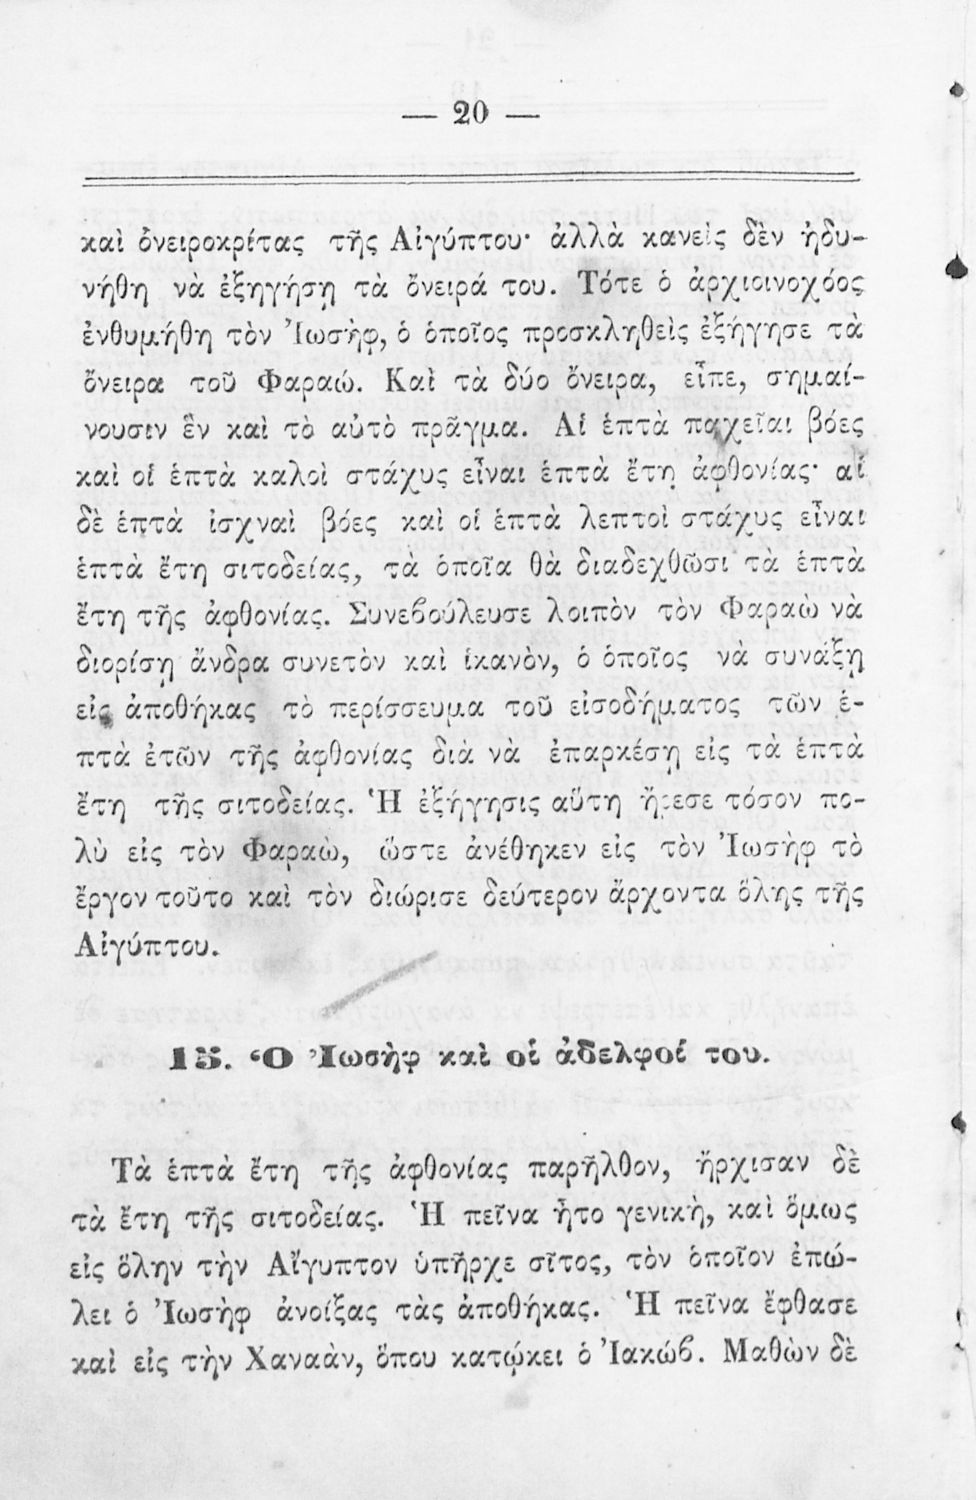 — 20 —
καὶ ὀνειροκρίτας τῆς Αἰγύπτου· ἀλλὰ κανεὶς δὲν ἠδυ-
νήθη νὰ ἐξηγήσῃ τὰ ὄνειρά του. Τότε ὁ ἀρχιοινοχόος
ἐνθυμήθη τὸν Ἰωσὴφ, ὁ ὁποῖος προσκληθεὶς ἐξήγησε τὰ
ὄνειρα τοῦ Φαραώ. Καὶ τὰ δύο ὄνειρα, εἶπε, σημαί-
νουσιν ἓν καὶ τὸ αὐτὸ πρᾶγμα. Αἱ ἑπτὰ παχεῖαι βόες
καὶ οἱ ἑπτὰ καλοὶ στάχυς εἶναι ἑπτὰ ἔτη ἀφθονίας· αἱ
δὲ ἑπτὰ ἰσχναὶ βόες καὶ οἱ ἑπτὰ λεπτοὶ στάχυς εἶναι
ἑπτὰ ἔτη σιτοδείας, τὰ ὁποῖα θὰ διαδεχθῶσι τὰ ἑπτὰ
ἔτη τῆς ἀφθονίας. Συνεϐούλευσε λοιπὸν τὸν Φαραὼ νὰ
διορίσῃ ἄνδρα συνετὸν καὶ ἱκανὸν, ὁ ὁποῖος νὰ συνάξῃ
εἰς ἀποθήκας τὸ περίσσευμα τοῦ εἰσοδήματος τῶν ἑ-
πτὰ ἐτῶν τῆς ἀφθονίας διὰ νὰ ἐπαρκέσῃ εἰς τὰ ἑπτὰ
ἔτη τῆς σιτοδείας. Ἡ ἐξήγησις αὕτη ἤρεσε τόσον πο-
λὺ εἰς τὸν Φαραὼ, ὥστε ἀνέθηκεν εἰς τὸν Ἰωσὴφ τὸ
ἔργον τοῦτο καὶ τὸν διώρισε δεύτερον ἄρχοντα ὅλης τῆς
Αἰγύπτου.
15. Ὁ Ἰωσὴφ καὶ οἱ ἀδελφοί του.
Τὰ ἑπτὰ ἔτη τῆς ἀφθονίας παρῆλθον, ἤρχισαν δὲ
τὰ ἔτη τῆς σιτοδείας. Ἡ πεῖνα ἦτο γενικὴ, καὶ ὅμως
εἰς ὅλην τὴν Αἴγυπτον ὑπῆρχε σῖτος, τὸν ὁποῖον ἐπώ-
λει ὁ Ἰωσὴφ ἀνοίξας τὰς ἀποθήκας. Ἡ πεῖνα ἔφθασε
καὶ εἰς τὴν Χαναὰν, ὅπου κατῴκει ὁ Ἰακώϐ. Μαθὼν δὲ